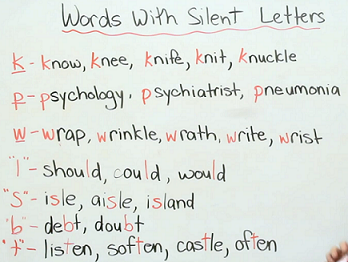 Words With Silent Letters
k - know, knee, knife, knit, knuckle
p - psychology, psychiatrist, pneumonia
w - wrap, wrinkle, wrath, write, wrist
"l" - should, could, would
"S" - isle, aisle, island
"b" - debt, doubt
"t" - listen, soften, castle, often